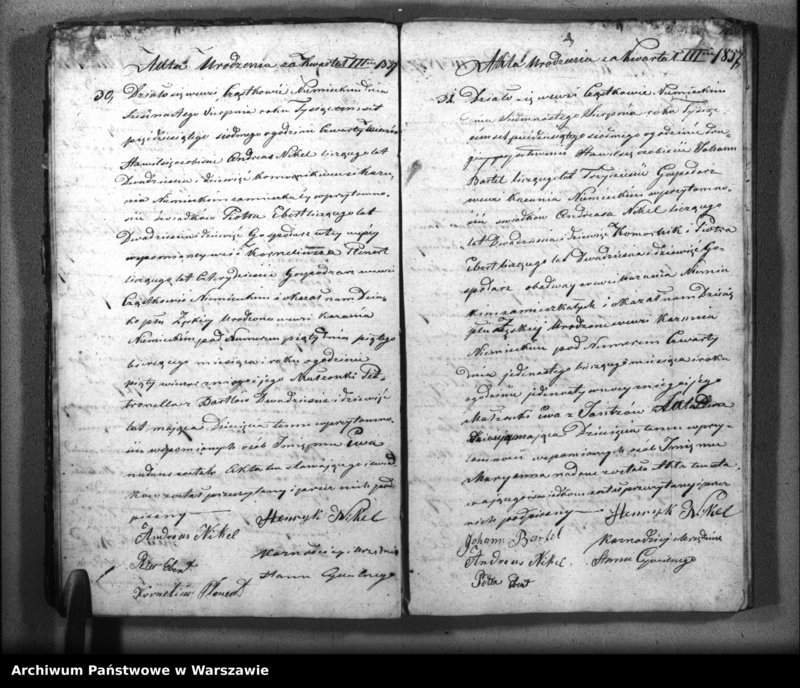 Akta Urodzenia za Kwartał III 1857
30, Działo się we wsi Cząstkowie Niemieckim dnia
Sierpnia roku Tysięcznego ośmset
pięćdziesiątego siódmego o godzinie Czwartej
Stawił się osobiście Andreas Nikel liczący lat
Dwadzieścia i dziewięć Komornik we wsi Kazu-
nia Niemieckim zamieszkały w przytomno-
ści świadków Piotra Ebert liczącego lat
Dwadzieścia dziewięć Gospodarz
Korneliusza Plenert
liczącego lat Czterdzieście Gospodarza we wsi
Cząstkowie Niemieckim i okazał nam Dziec-
ko płci Żeńskiej Urodzone we wsi Kazunia
Niemieckim pod Numerem piątym dnia piątego
bieżącego miesiąca i roku o godzinie
piąty wieczór z niego i jego Małżonki Pet-
ronella z Bartlów Dwadzieścia i dziewięć
lat mająca Dziecięciu temu w przytomno-
ści wspomionych osób Imię mu Ewa
nadane zostało Akt ten stawającego i świad-
kom został przeczytany i przez nich pod-
pisany
Henryk Nikel
Andreas Nikel
Peter Ebert
Kornelius Plenert
Akta Urodzenia za Kwartał III 1857,
31. Działo się we wsi Cząstkowie Niemieckim
dnia Sierpnia roku Tysiąc
ośmset pięćdziesiątego siódmego o godzinie
Stawił się osobiście Johann
Bartel liczący lat Trzydzieści Gospodarz
we wsi Kazunia Niemieckim w przytomno-
ści świadków Andreasa Nikel liczącego
lat Dwadzieścia dziewięć Komornik i Piotra
Ebert liczącego lat Dwadzieścia dziewięć Go-
spodarz obadwaj we wsi Kazunia Niemie-
ckim zamieszkałych i okazał nam Dziecię
płci Żeńskiej Urodzone we wsi Kazunia
Niemieckim pod Numerem Czwartym
dnia jedenastego bieżącego miesiąca i roku
o godzinie jedenasty w nocy z niego i jego
Małżonki Ewa z Jantzów
mająca Dziecięciu temu w przy-
tomności wspomionych osób Imię mu
Maryanna nadane zostało Akt ten sta-
wającego i świadkom został przeczytany i przez
nich podpisany
Henryk Nikel
Johann Bartel
Andreas Nikel.
Peter Ebert
Archiwum Państwowe w Warszawie